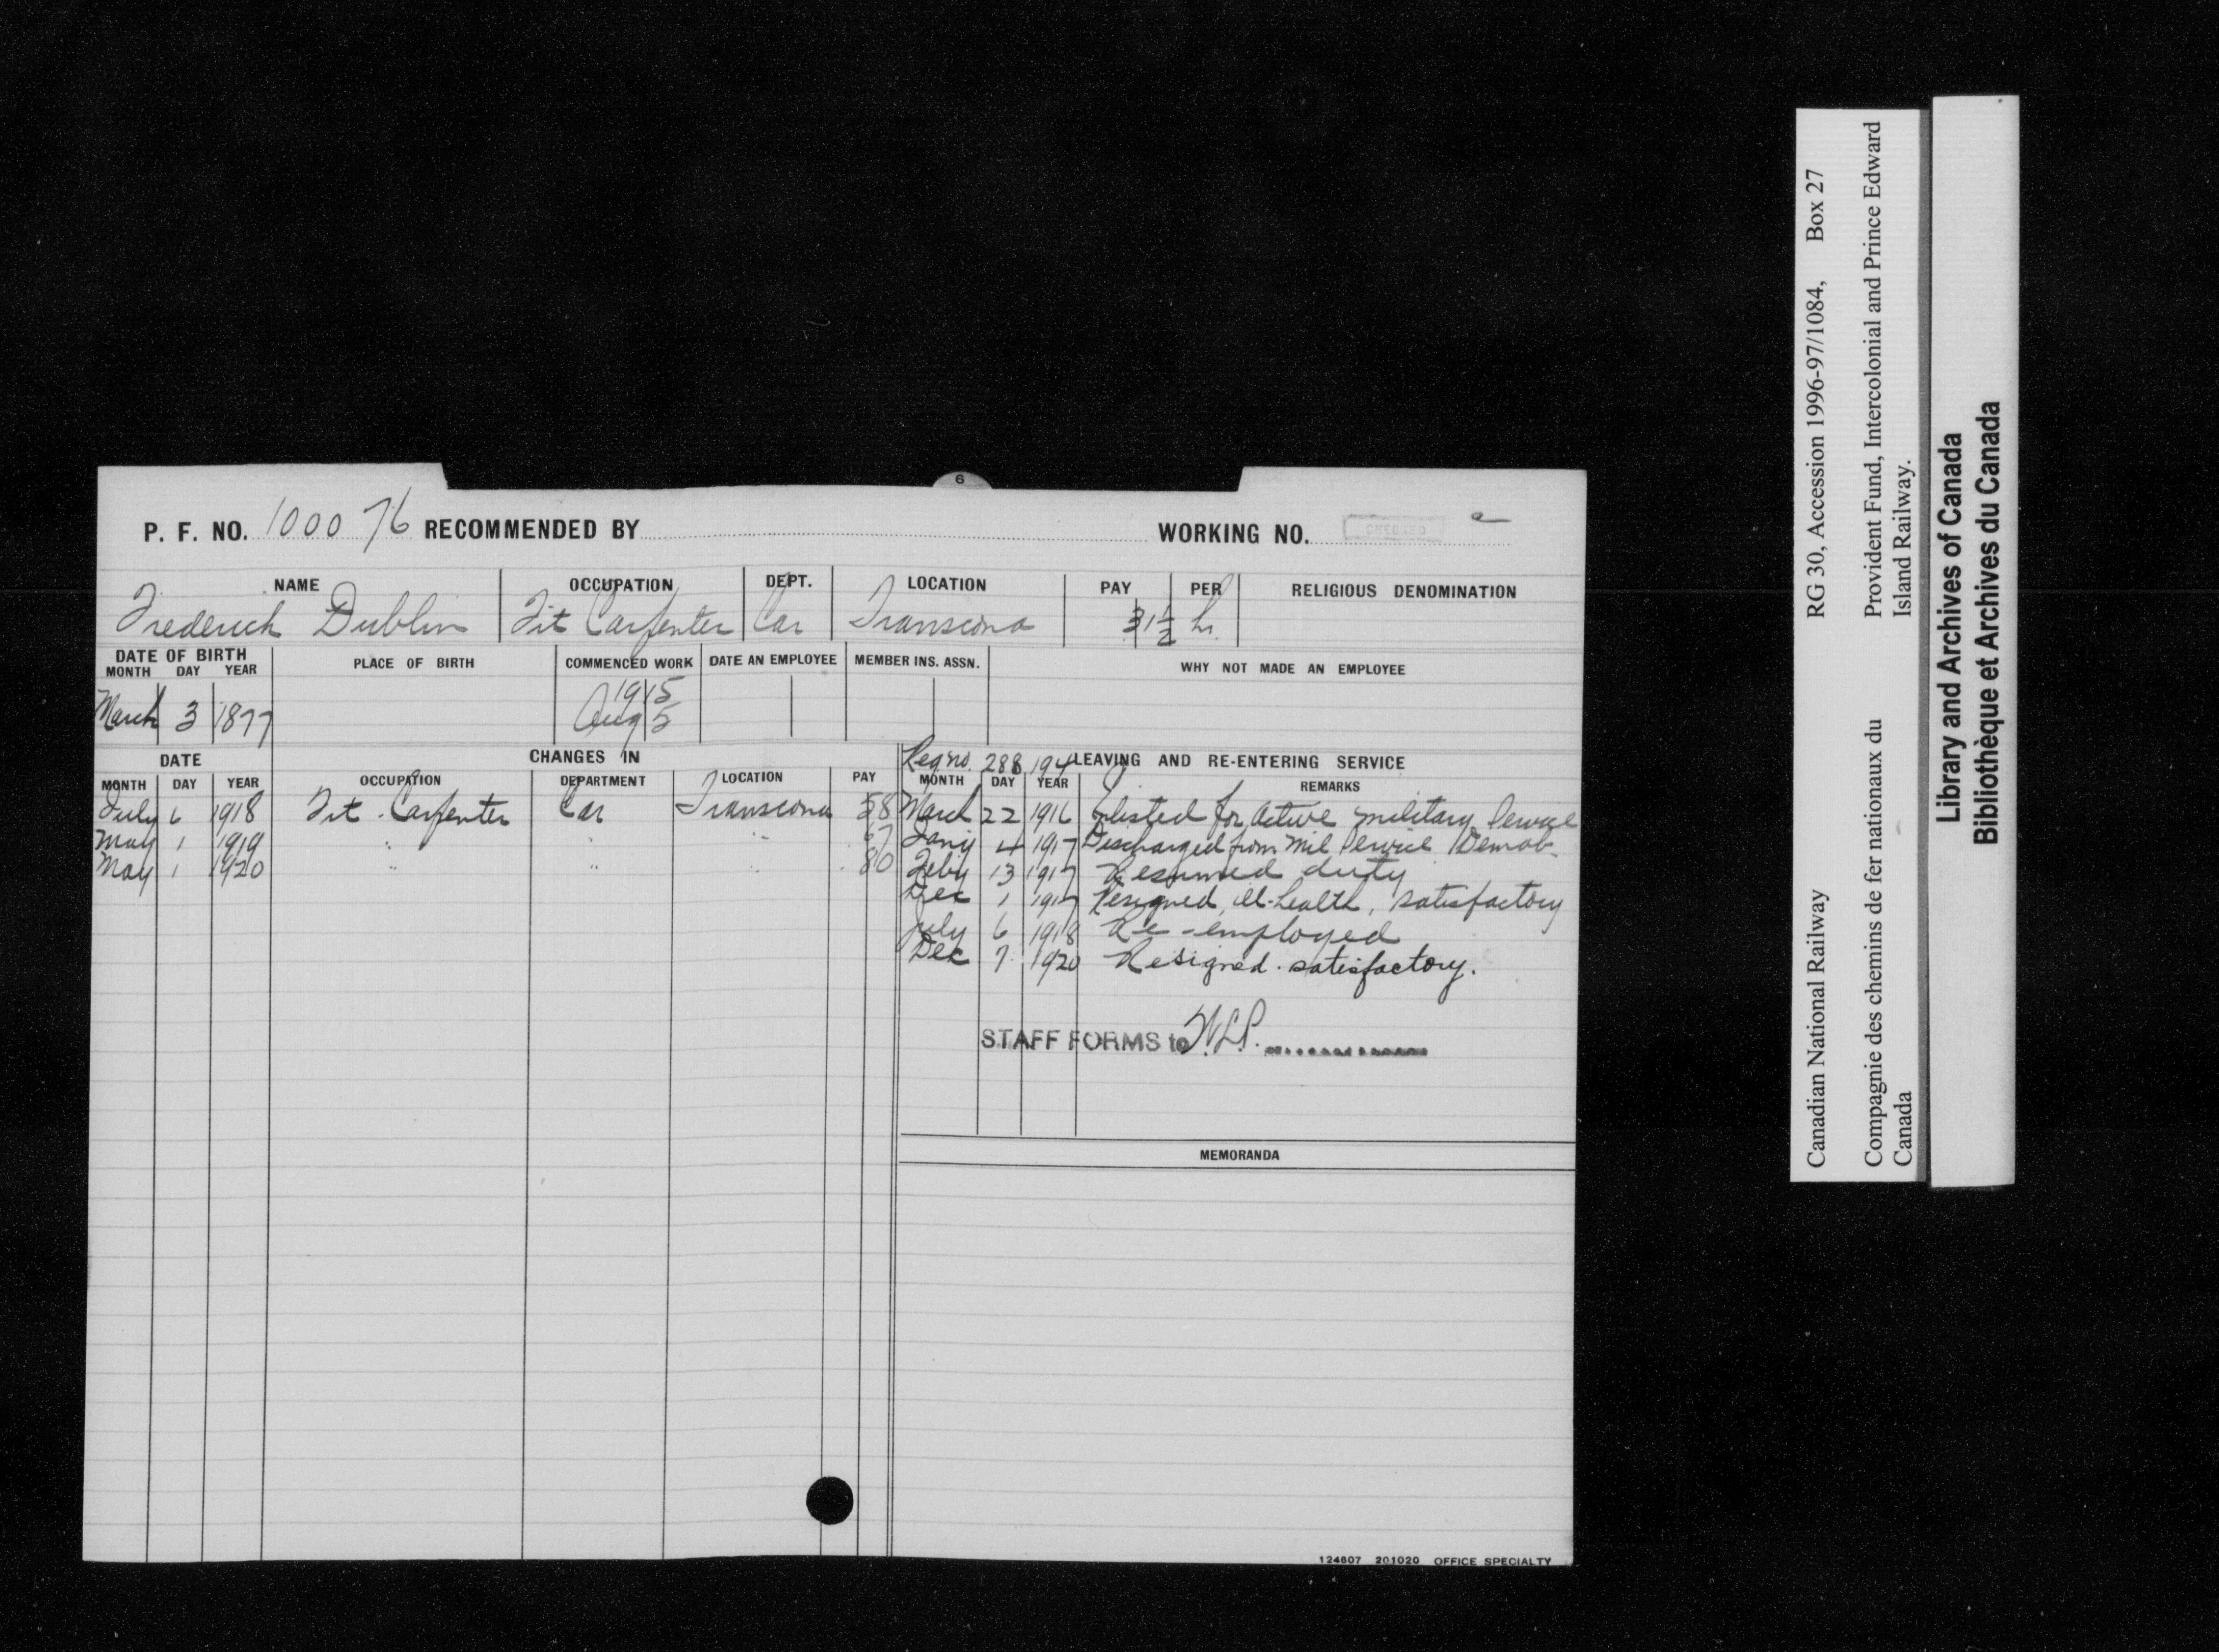 6
P. F. NO. 100076 RECOMMENDED BY WORKING NO. CHECKED
NAME OCCUPATION DEPT. LOCATION PAY PER RELIGIOUS DENOMINATION
Frederick Dublin Fit Carpenter Car Transcona 31½ hr.
DATE OF BIRTH PLACE OF BIRTH COMMENCED WORK DATE AN EMPLOYEE MEMBER INS. ASSN. WHY NOT MADE AN EMPLOYEE
MONTH DAY YEAR
1915
March 3 1877 Aug 5
DATE CHANGES IN Reg no. 288194 LEAVING AND RE-ENTERING SERVICE
MONTH DAY YEAR OCCUPATION DEPARTMENT LOCATION PAY MONTH DAY YEAR REMARKS
July 6 1918 Fit. Carpenter Car Transcona 58 March 22 1916 Enlisted for active military service
May 1 1919 " " 67 Jany 4 1917 Discharged from mil service Demob-
May 1 1920 " " " 80 Feby 13 1917 Resumed duty
Dec 1 1917 Resigned, ill-health, satisfactory
July 6 1918 Re-employed
Dec 7 1920 Resigned. satisfactory.
STAFF FORMS to
MEMORANDA
124607 201020 OFFICE SPECIALTY
Canadian National Railway RG 30, Accession 1996-97/1084, Box 27
Compagnie des chemins de fer nationaux du Canada
Provident Fund, Intercolonial and Prince Edward Island Railway.
Library and Archives of Canada
Bibliothèque et Archives du Canada